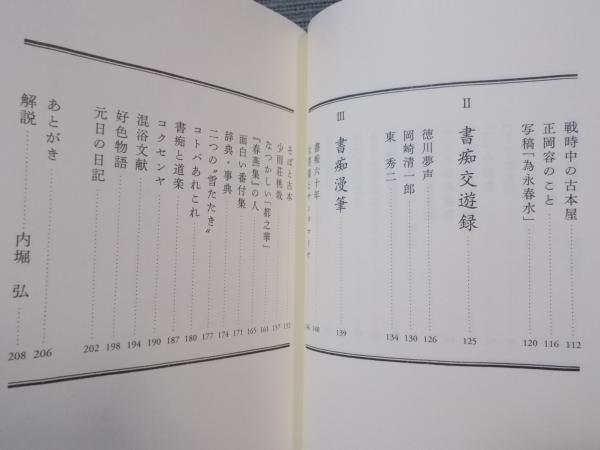 戦時中の古本屋 112
正岡容のこと 116
写稿「為永春水」 120
Ⅱ 書痴交遊録 125
徳川夢声 126
岡崎清一郎 130
東 秀三 134
Ⅲ 書痴漫筆 139
書痴六十年
160
そばと古本 152
少雨荘桃哉 157
なつかしい「都之華」 161
『春燕集』の人 165
面白い番付集 171
辞典・事典 174
二つの〝雪たたき〟 177
コトバあれこれ 180
書痴と道楽 187
コクセンヤ 190
混浴文献 194
好色物語 198
元日の日記 202
あとがき 206
解説 内堀 弘 208